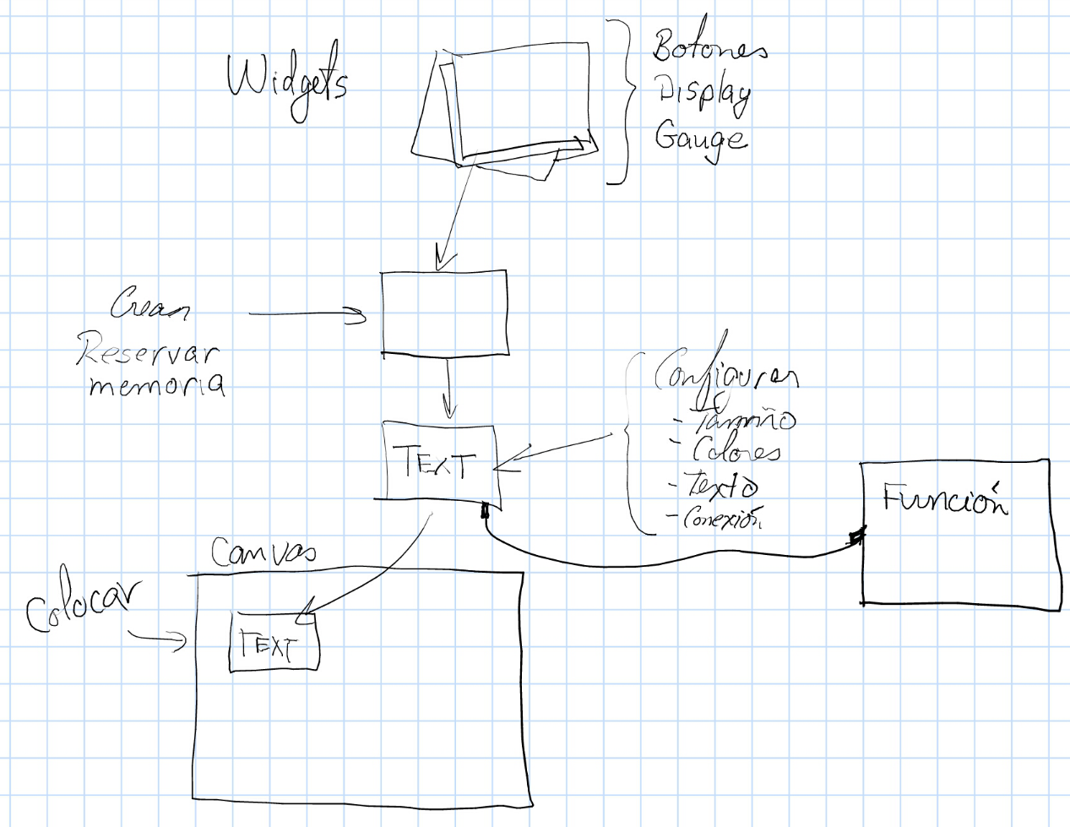 Widgets
Botones
Display
Gauge
Crear
Reservar
memoria
Configurar
- Tamaño
- Colores
- Texto
- Conexión
TEXT
Función
Canvas
Colocar
TEXT